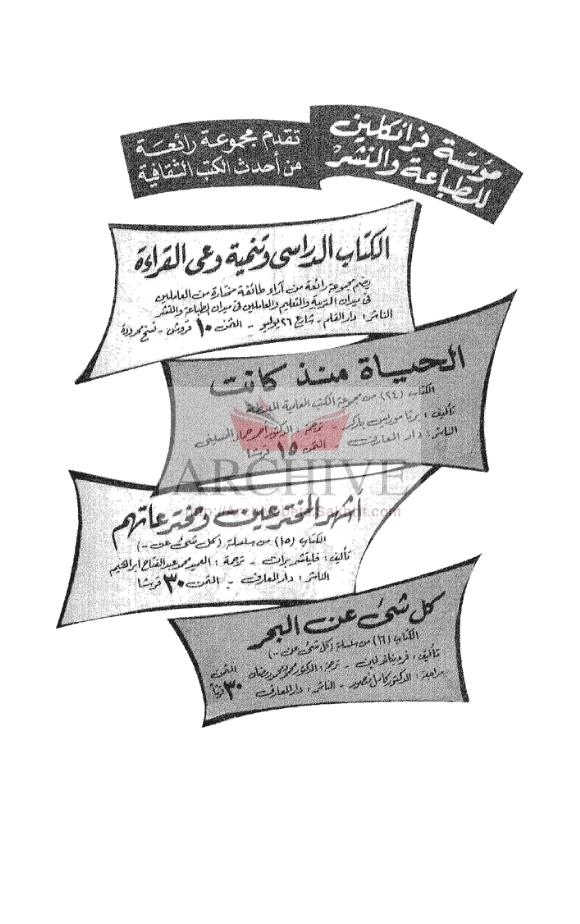 مؤسسة فرانكلين
للطباعة والنشر
تقدم مجموعة رائعة
من أحدث الكتب الثقافية
الكتاب المدرسى وتنمية وعى القراءة
يضم مجموعة رائعة من آراء طائفة مختارة من العاملين
فى ميدان التربية والتعليم والعاملين فى ميدان الطباعة والنشر
الناشر : دار القلم - شارع ٢٦ يوليو - الثمن ١٠ قروش - نسخ محدودة
الحياة منذ كانت
الكتاب (٢٤) من مجموعة الكتب العلمية المبسطة
تأليف : برتا موريس باركر - ترجمة : الدكتور أحمد حماد الحسينى
الناشر : دار المعارف - الثمن ١٥ قرشا
ARCHIVE
أشهر المخترعين ومخترعاتهم
الكتاب (١٥) من سلسلة (كل شئ عن ..)
تأليف : فليتشر برات - ترجمة : العميد محمد عبد الفتاح ابراهيم
الناشر : دار المعارف - الثمن ٣٠ قرشا
كل شئ عن البحر
الكتاب (١٦) من سلسلة (كل شئ عن ..)
تأليف : فرديناند لين - ترجمة : الدكتور محمود محمد رمضان
مراجعة : الدكتور كامل منصور - الناشر : دار المعارف الثمن ٣٠ قرشا